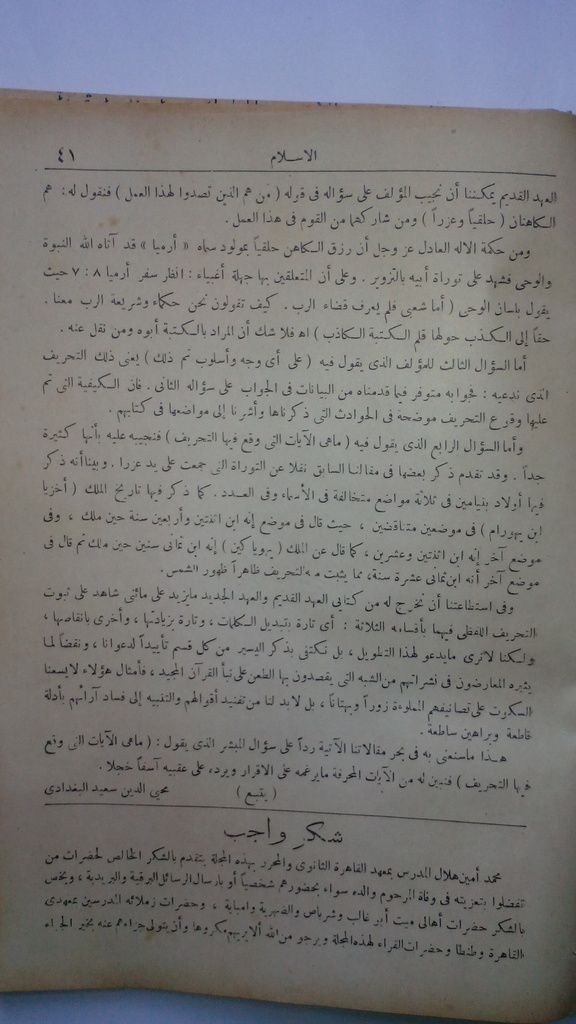 الاسلام ٤١
العهد القديم يمكننا أن نجيب المؤلف على سؤاله فى قوله ( من هم الذين تصدوا لهذا العمل ) فنقول له : هم
الكاهنان ( حلقياً وعزراً ) ومن شاركهما من القوم فى هذا العمل .
ومن حكمة الاله العادل عز وجل أن رزق الكاهن حلقياً بمولود سماه « أرميا » قد آتاه الله النبوة
والوحى فشهد على توراة أبيه بالتزوير . وعلى أن المتعلقين بها جهلة أغبياء : انظر سفر أرميا ٨ : ٧ حيث
يقول بلسان الوحى ( أما شعبى فلم يعرف قضاء الرب . كيف تقولون نحن حكماء وشريعة الرب معنا .
حقاً إلى الكذب حولها قلم الكتبة الكاذب ) اه فلا شك أن المراد بالكتبة أبوه ومن نقل عنه .
أما السؤال الثالث للمؤلف الذى يقول فيه ( على أى وجه وأسلوب تم ذلك ) يعنى ذلك التحريف
الذى ندعيه : فجوابه متوفر فيما قدمناه من البيانات فى الجواب على سؤاله الثانى . فان الكيفية التى تم
عليها وقوع التحريف موضحة فى الحوادث التى ذكرناها وأشرنا إلى مواضعها فى كتابهم .
وأما السؤال الرابع الذى يقول فيه ( ماهى الآيات التى وقع فيها التحريف ) فنجيبه عليه بأنها كثيرة
جداً . وقد تقدم ذكر بعضها فى مقالنا السابق نقلا عن التوراة التى جمعت على يد عزرا . وبينا أنه ذكر
فيها أولاد بنيامين فى ثلاثة مواضع متخالفة فى الأسماء وفى العدد . كما ذكر فيها تاريخ الملك ( أخزيا
ابن يهورام ) فى موضعين متناقضين ، حيث قال فى موضع إنه ابن اثنتين وأربعين سنة حين ملك ، وفى
موضع آخر إنه ابن اثنتين وعشرين ، كما قال عن الملك ( يهوياكين ) إنه ابن ثمانى سنين حين ملك ثم قال فى
موضع آخر أنه ابن ثمانى عشرة سنة ، مما يثبت التحريف ظاهراً ظهور الشمس .
وفى استطاعتنا أن نخرج له من كتابى العهد القديم والعهد الجديد مايزيد على مائتى شاهد على ثبوت
التحريف اللفظى فيهما بأقسامه الثلاثة : أى تارة بتبديل الكلمات ، وتارة بزيادتها ، وأخرى بانقاصها ،
ولكنا لانرى مايدعو لهذا التطويل ، بل نكتفى بذكر اليسير من كل قسم تأييداً لدعوانا ، ونقضاً لما
يثيره المعارضون فى نشراتهم من الشبه التى يقصدون بها الطعن على نبأ القرآن المجيد ، فأمثال هؤلاء لايسعنا
السكوت على تصانيفهم المملوءة زوراً وبهتاناً ، بل لابد لنا من تفنيد أقوالهم والتنبيه إلى فساد آرائهم بأدلة
قاطعة وبراهين ساطعة .
هذا ماسنعنى به فى بحر مقالاتنا الآتية رداً على سؤال المبشر الذى يقول : ( ماهى الآيات التى وقع
فيها التحريف ) فنبين له من الآيات المحرفة مايرغمه على الاقرار ويرده على عقبيه آسفاً خجلا .
( يتبع ) محيى الدين سعيد البغدادى
شكر واجب
محمد أمين هلال المدرس بمعهد القاهرة الثانوى والمحرر بهذه المجلة يتقدم بالشكر الخالص لحضرات من
تفضلوا بتعزيته فى وفاة المرحوم والده سواء بحضورهم شخصياً أو بارسال الرسائل البرقية والبريدية ، ويخص
بالشكر حضرات أهالى ميت أبو غالب وشرباص والضهرية وامبابة ، وحضرات زملائه المدرسين بمعهدى
القاهرة وطنطا وحضرات القراء لهذه المجلة ويرجو من الله ألا يريهم مكروها وأن يتولى جزاءهم عنه بخير الجزاء